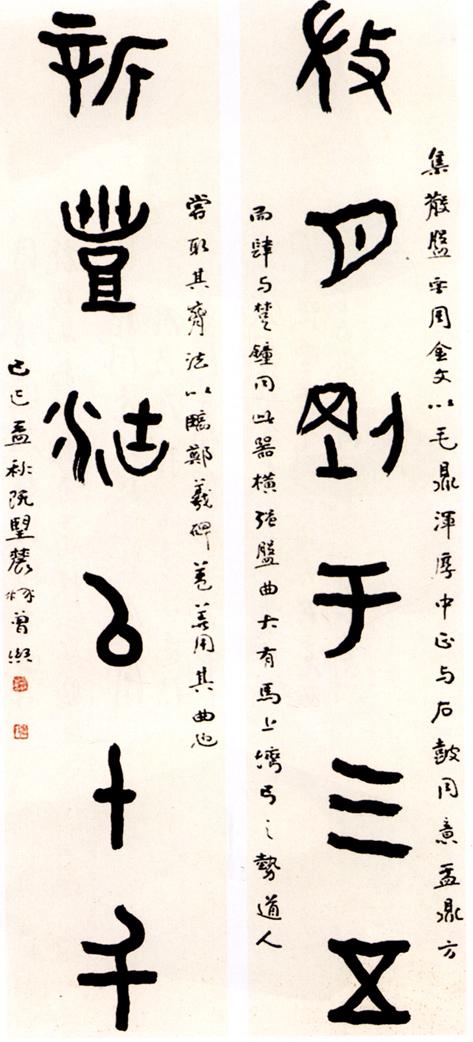 月剛于三五
集散盤宗周金文以毛鼎渾厚中正與石鼓同意盂鼎方
而肆與楚鐘同此器橫弛盤曲大有馬上彎弓之勢道人
新豐沽以十千
嘗取其齊法以臨鄭羲碑蓋善用其曲也
己巳孟秋既望農髯曾熙